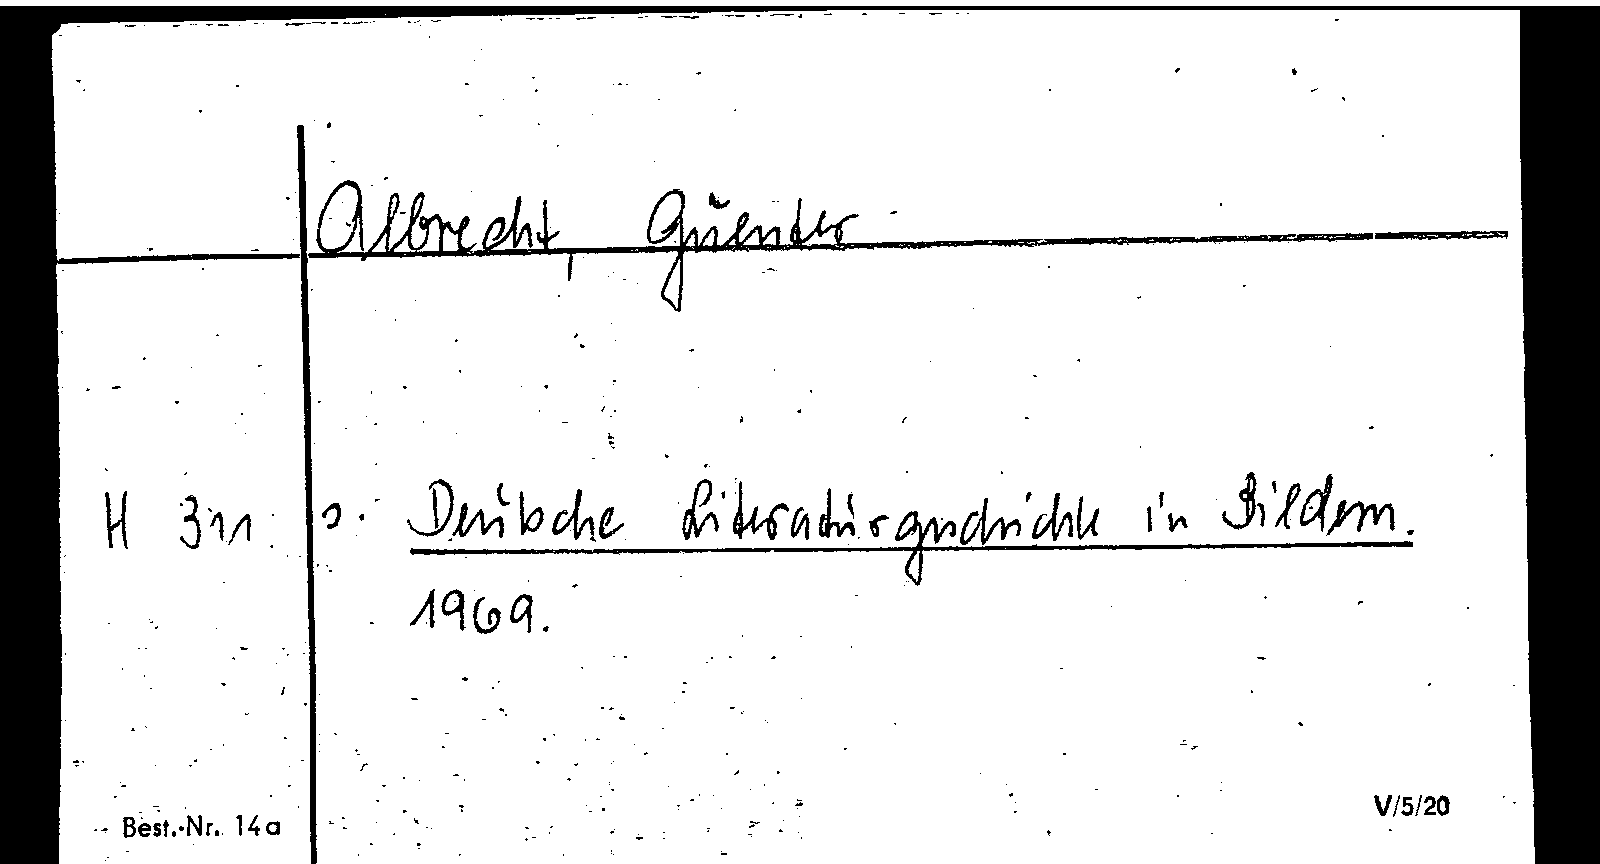 Albrecht, Günter
H 311 s. Deutsche Literaturgeschichte in Bildern.
1969.
Best.-Nr. 14a V/5/20